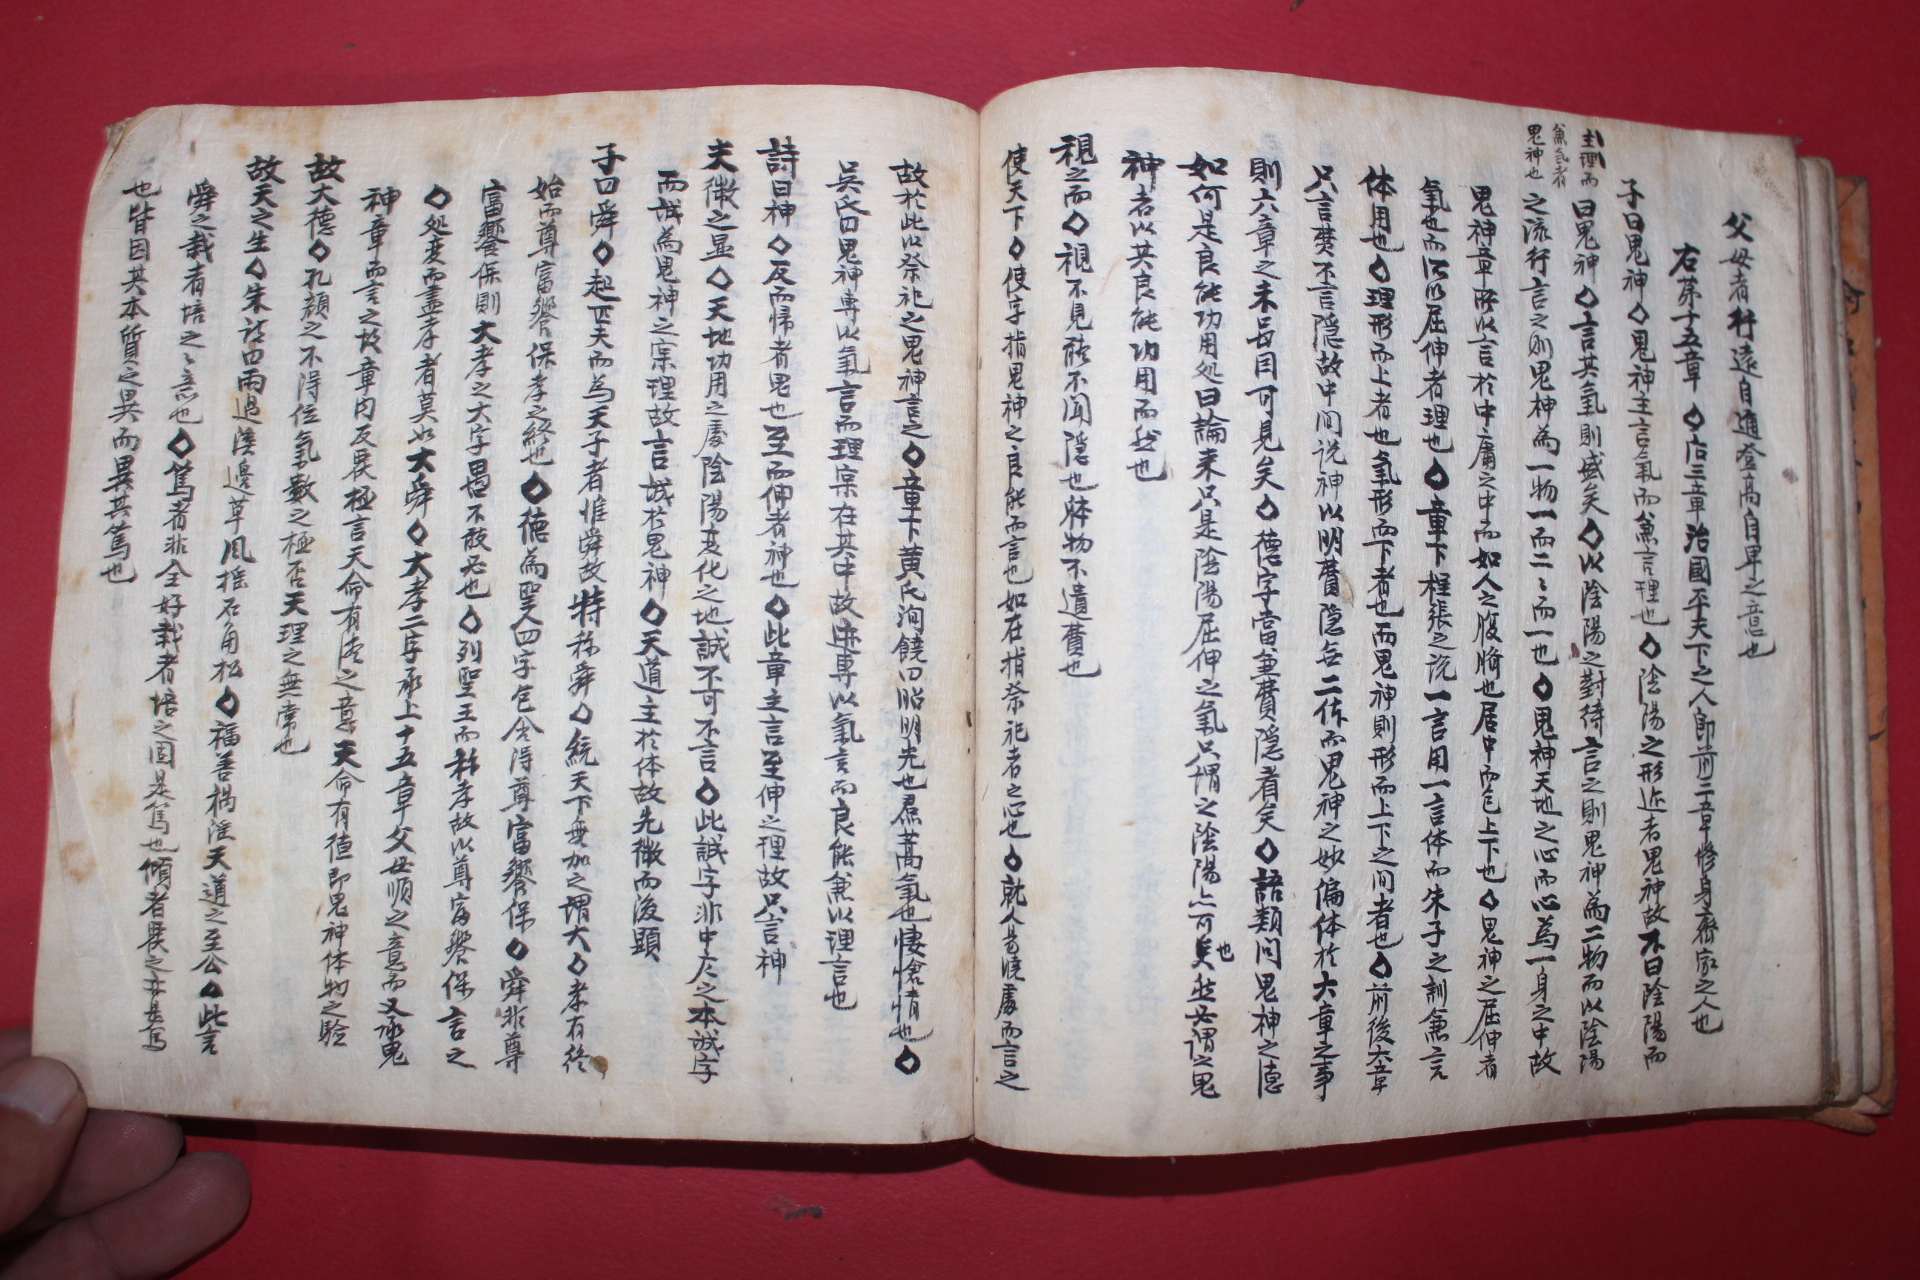 父母者行遠自邇登高自卑之意也
右第十五章◇右三章治國平天下之人卽前二章修身齊家之人也
子曰鬼神◇鬼神主言氣而兼言理也◇陰陽之形迹者鬼神故不曰陰陽而
主理而
兼氣者
鬼神也
曰鬼神◇言其氣則盛矣◇以陰陽之對待言之則鬼神爲二物而以陰陽
之流行言之則鬼神爲一物一而二二而一也◇鬼神天地之心而心爲一身之中故
鬼神章所以言於中庸之中而如人之腹臍也居中而包上下也◇鬼神之屈伸者
氣也而所以屈伸者理也◇章下程張之說一言用一言体而朱子之訓兼言
体用也◇理形而上者也氣形而下者也而鬼神則形而上下之间者也◇前後六章
只言費不言隠故中间说神以明費隠無二体而鬼神之妙偏体於六章之事
則六章之来岳目可見矣◇德字當兼費隠者矣◇語類问鬼神之德
如何是良能功用処曰論来只是陰陽屈伸之氣只謂之陰陽亦可矣也然必谓之鬼
神者以其良能功用而然也
視之而◇視不見聽不聞隠也体物不遺費也
使天下◇使字指鬼神之良能而言也如在指祭祀者之心也◇就人易曉處而言之
故於此以祭祀之鬼神言之◇章下黄氏洵饒曰昭明光也焄蒿氣也悽愴情也◇
吳氏曰鬼神專以氣言而理寀在其中故迹專以氣言而良能兼以理言也
詩曰神◇反而帰者鬼也至而伸者神也◇此章主言至伸之理故只言神
夫微之显◇天地功用之處陰陽变化之地誠不可不言◇此誠字非中庸之本誠字
而誠爲鬼神之宲理故言誠於鬼神◇天道主於体故先微而後顕
子曰舜◇起匹夫而爲天子者惟舜故特称舜◇統天下無加之謂大◇孝有終
始而尊富饗保孝之終也◇德爲聖人四字包含得尊富饗保◇舜非尊
富饗保則大孝之大字曷不敢必也◇列聖王而称孝故以尊富饗保言之
◇処变而盡孝者莫如大舜◇大孝二字承上十五章父母順之意而又承鬼
神章而言之故章内反覆極言天命有德之意天命有德即鬼神体物之驗
故大德◇孔顔之不得位氣數之極否天理之無常也
故天之生◇朱詩曰雨過溪邊草風搖石角松◇福善禍淫天道之至公◇此言
舜之栽者培之之意也◇篤者非全好栽者培之固是篤也傾者覆之亦是篤
也皆因其本質之異而異其篤也